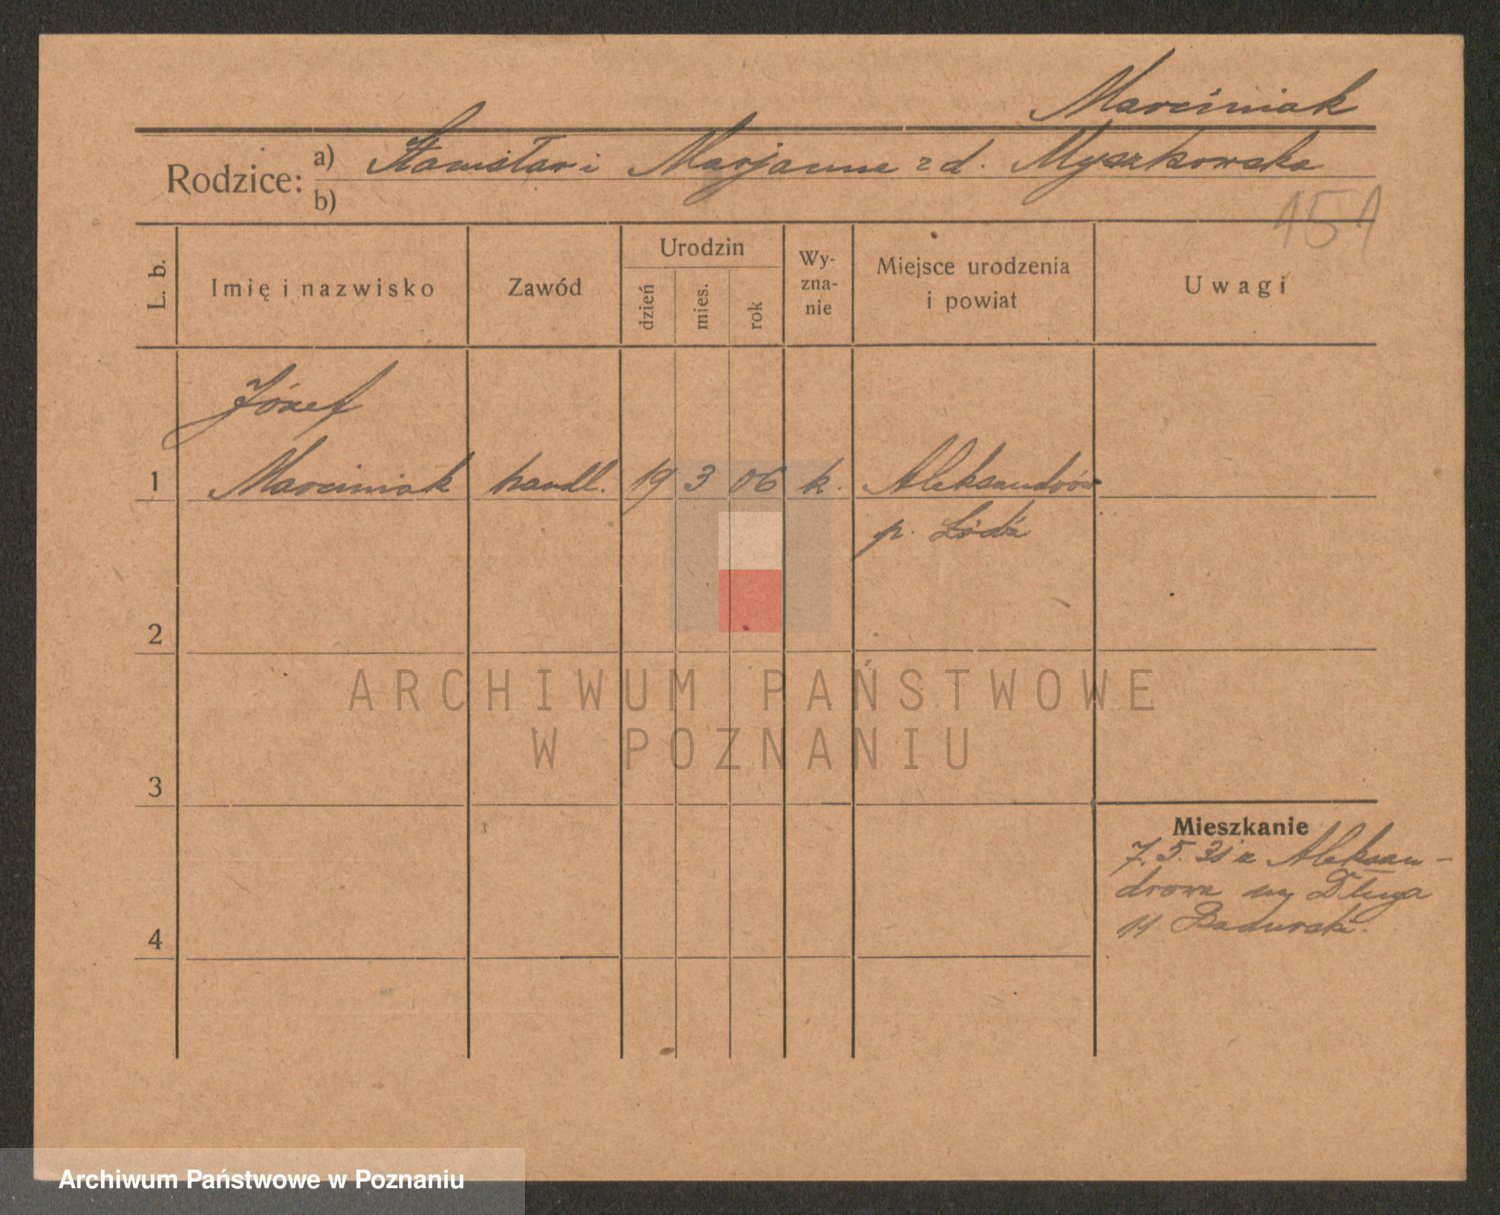 Marciniak
Rodzice: a) Stanisław i Marjanna z d. Myszkowska
b)
151
L. b.
Imię i nazwisko
Zawód
Urodzin
dzień
mies.
rok
Wy-
zna-
nie
Miejsce urodzenia
i powiat
Uwagi
Józef
1 Marciniak handl. 19 3 06 k. Aleksandrów
p. Łódź
2
3
4
Mieszkanie
7. 5. 31 z Aleksan-
drowa Długa
11 Badurski
ARCHIWUM PAŃSTWOWE
W POZNANIU
Archiwum Państwowe w Poznaniu